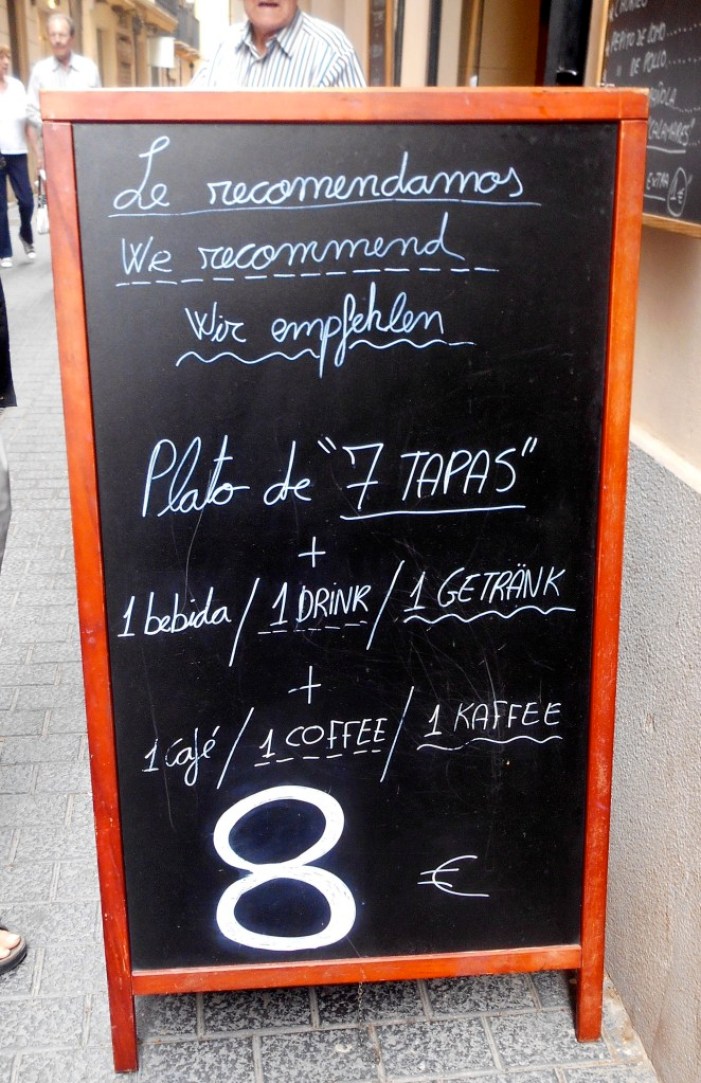 Le recomendamos
We recommend
Wir empfehlen
Plato de "7 TAPAS"
+
1 bebida / 1 DRINK / 1 GETRÄNK
+
1 Café / 1 COFFEE / 1 KAFFEE
8 €
PEPITO DE LOMO......
" DE POLLO.....
CALAMARES"
EXTRA 1€